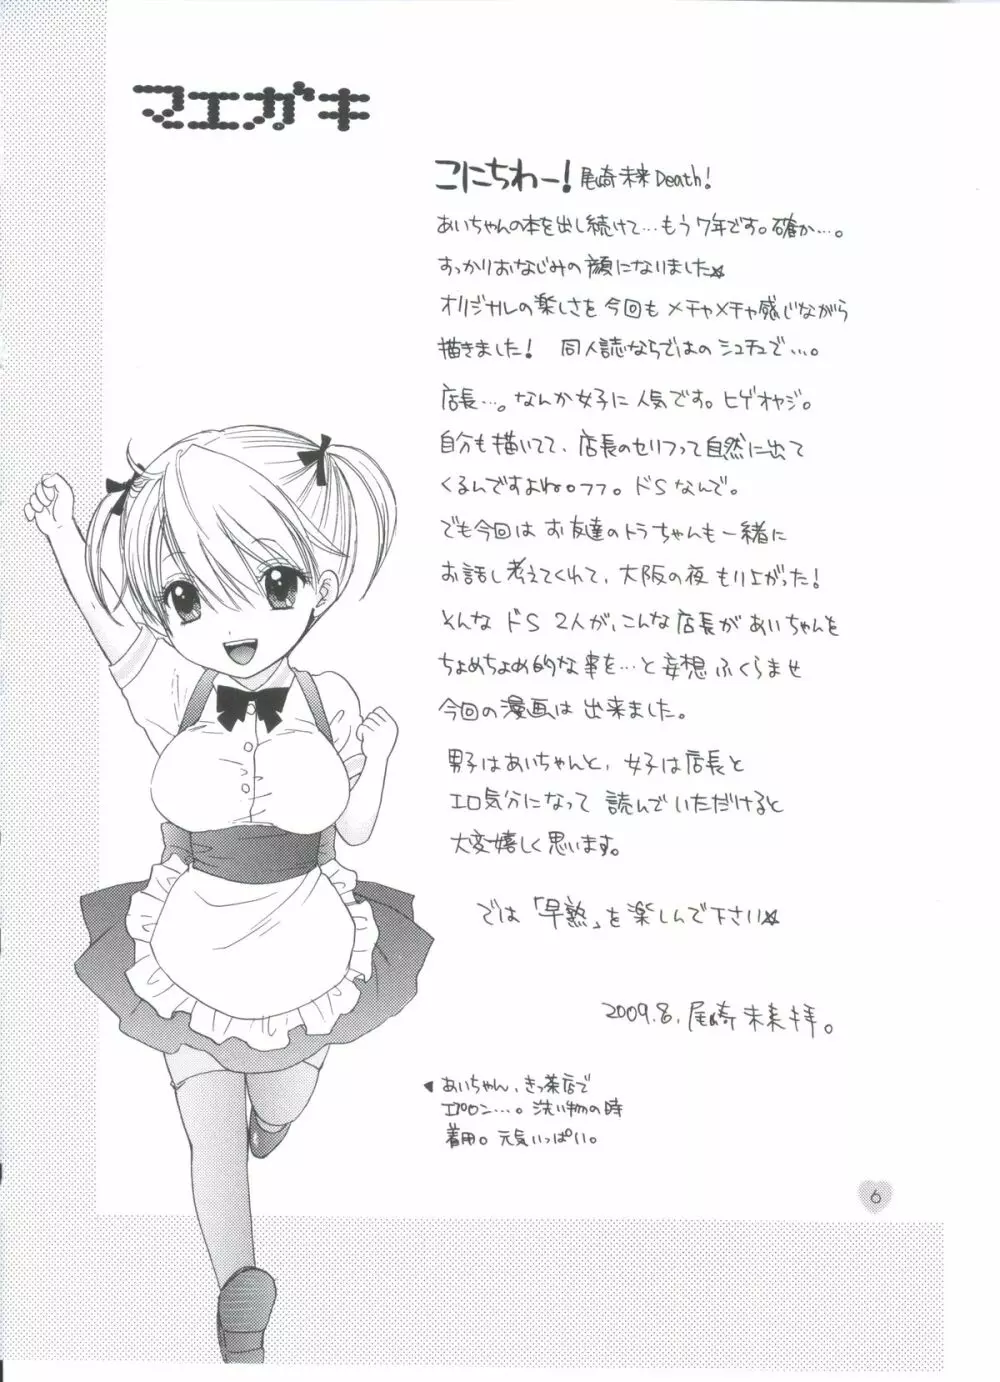 マエガキ
こにちわー! 尾崎未来Death!
あいちゃんの本を出し続けて…もう7年です。確か…。
すっかりおなじみの顔になりました☆
オリジナルの楽しさを今回もメチャメチャ感じながら
描きました! 同人誌ならではのシュチュで…。
店長…。なんか女子に人気です。ヒゲオヤジ。
自分も描いてて、店長のセリフって自然に出て
くるんですよね。フフ。ドSなんで。
でも今回はお友達のトラちゃんも一緒に
お話し考えてくれて、大阪の夜もり上がった!
そんなドS2人が、こんな店長があいちゃんを
ちょめちょめ的な事を…と妄想ふくらませ
今回の漫画は出来ました。
男子はあいちゃんと、女子は店長と
エロ気分になって読んでいただけると
大変嬉しく思います。
では「早熟」を楽しんで下さい☆
2009.8. 尾崎未来拝。
◀あいちゃん、きっ茶店で
エプロン…。洗い物の時
着用。元気いっぱい。
6